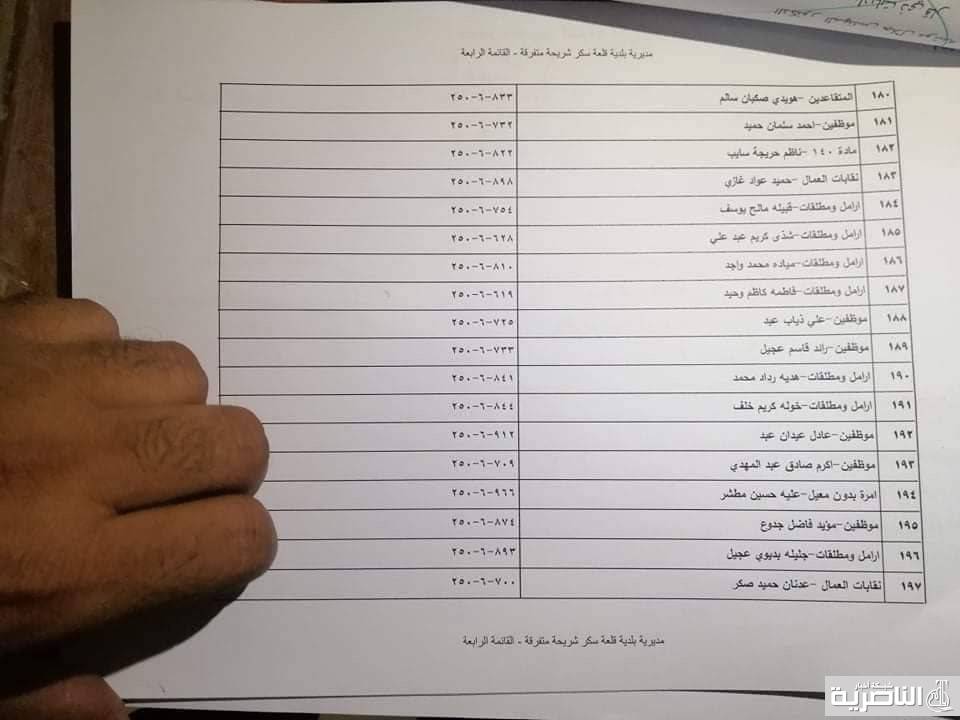 مديرية بلدية قلعة سكر شريحة متفرقة - القائمة الرابعة
١٨٠ المتقاعدين -هويدي صكبان سالم ٨٣٣-٦-٢٥٠
١٨١ موظفين-احمد سلمان حميد ٧٣٢-٦-٢٥٠
١٨٢ مادة ١٤٠ -ناظم حريجة سايب ٨٢٢-٦-٢٥٠
١٨٣ نقابات العمال -حميد عواد غازي ٨٩٨-٦-٢٥٠
١٨٤ ارامل ومطلقات-قبيله مالح يوسف ٧٥٤-٦-٢٥٠
١٨٥ ارامل ومطلقات-شذى كريم عبد علي ٦٢٨-٦-٢٥٠
١٨٦ ارامل ومطلقات-مياده محمد واجد ٨١٠-٦-٢٥٠
١٨٧ ارامل ومطلقات-فاطمه كاظم وحيد ٦١٩-٦-٢٥٠
١٨٨ موظفين-علي ذياب عبد ٧٢٥-٦-٢٥٠
١٨٩ موظفين-رائد قاسم عجيل ٧٣٣-٦-٢٥٠
١٩٠ ارامل ومطلقات-هديه رداد محمد ٨٤١-٦-٢٥٠
١٩١ ارامل ومطلقات-خوله كريم خلف ٨٤٤-٦-٢٥٠
١٩٢ موظفين-عادل عيدان عبد ٩١٢-٦-٢٥٠
١٩٣ موظفين-اكرم صادق عبد المهدي ٧٠٩-٦-٢٥٠
١٩٤ امرة بدون معيل-عليه حسين مطشر ٩٦٦-٦-٢٥٠
١٩٥ موظفين-مؤيد فاضل جدوع ٨٧٤-٦-٢٥٠
١٩٦ ارامل ومطلقات-جليله بديوي عجيل ٨٩٣-٦-٢٥٠
١٩٧ نقابات العمال -عدنان حميد صكر ٧٠٠-٦-٢٥٠
مديرية بلدية قلعة سكر شريحة متفرقة - القائمة الرابعة
شبكة أخبار
الناصرية